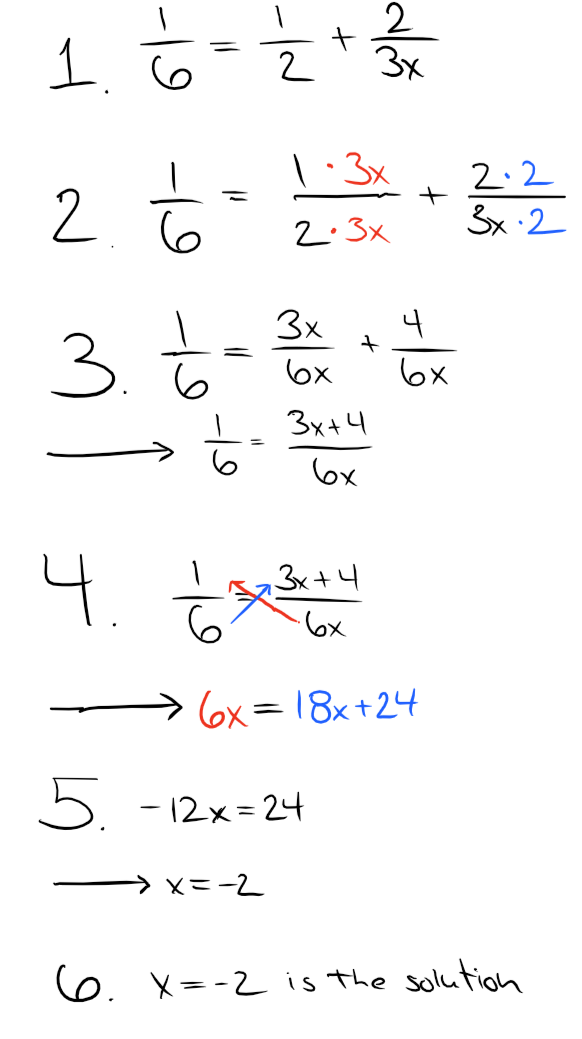 1. 1/6 = 1/2 + 2/3x
2. 1/6 = 1·3x/2·3x + 2·2/3x·2
3. 1/6 = 3x/6x + 4/6x
→ 1/6 = 3x+4/6x
4. 1/6 = 3x+4/6x
→ 6x = 18x+24
5. -12x=24
→ x=-2
6. x=-2 is the solution